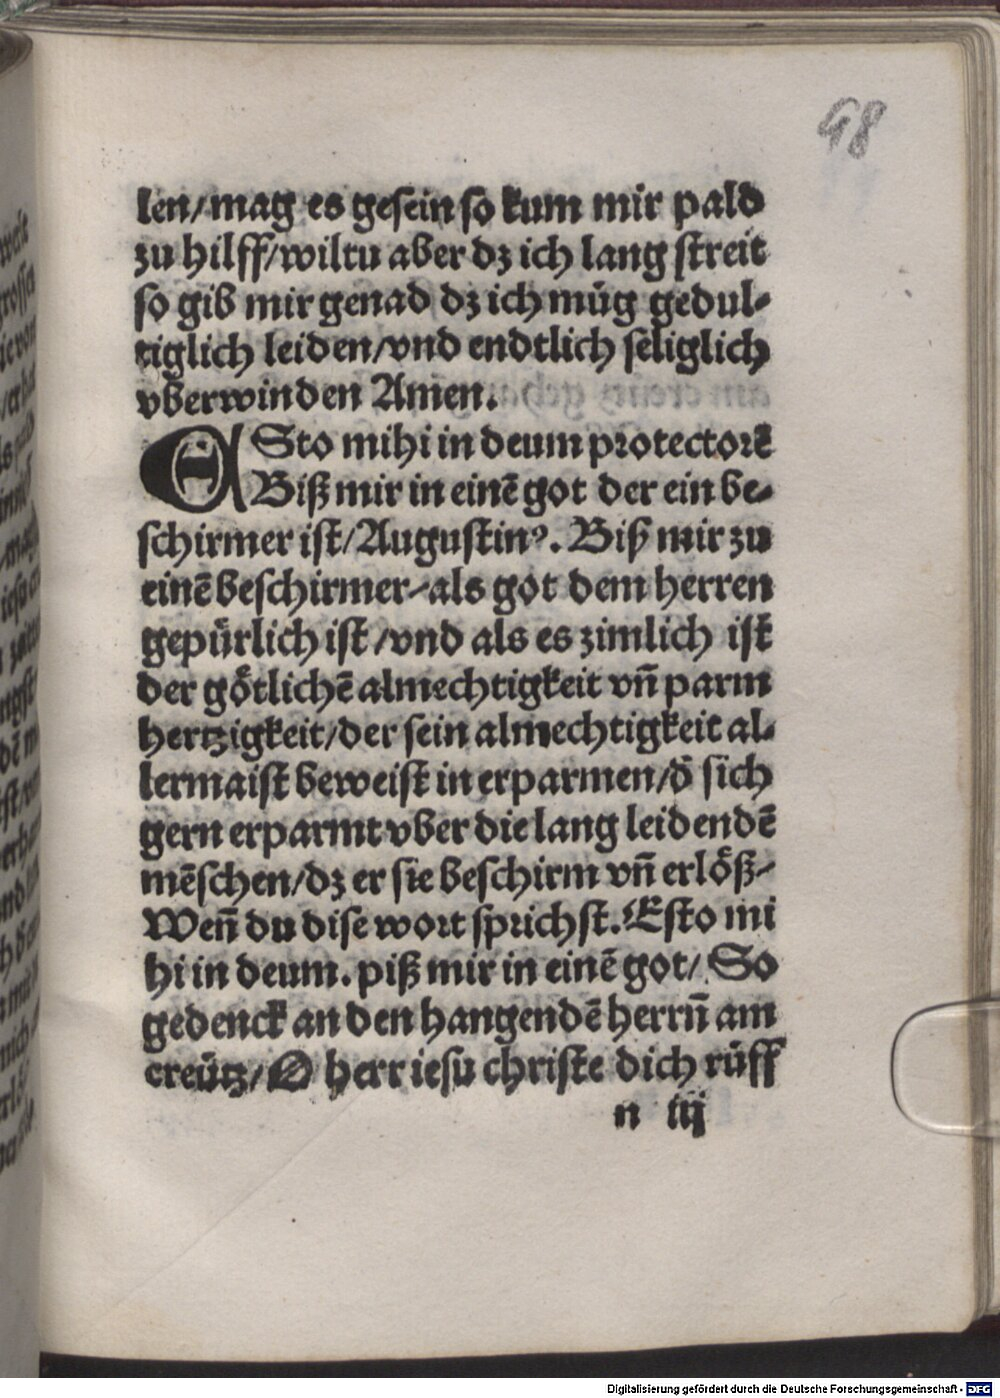 98
len/mag es gesein so kum mir pald
zu hilff/wiltu aber dz ich lang streit
so gib mir genad dz ich müg gedul⸗
tiglich leiden/vnd endtlich seliglich
vberwinden Amen.
ESto mihi in deum protectorē
Biß mir in einē got der ein be⸗
schirmer ist/Augustinꝰ. Biß mir zu
einē beschirmer/als got dem herren
gepürlich ist/vnd als es zimlich ist
der götlichē almechtigkeit vn̄ parm
hertzigkeit/der sein almechtigkeit al⸗
lermaist beweist in erparmen/d̄ sich
gern erparmt vber die lang leidendē
mēschen/dz er sie beschirm vn̄ erlöß/
Wen̄ du dise wort sprichst. Esto mi
hi in deum. piß mir in einē got/ So
gedenck an den hangendē herrn̄ am
creütz/O herr iesu christe dich rüff
n iij
Digitalisierung gefördert durch die Deutsche Forschungsgemeinschaft - DFG